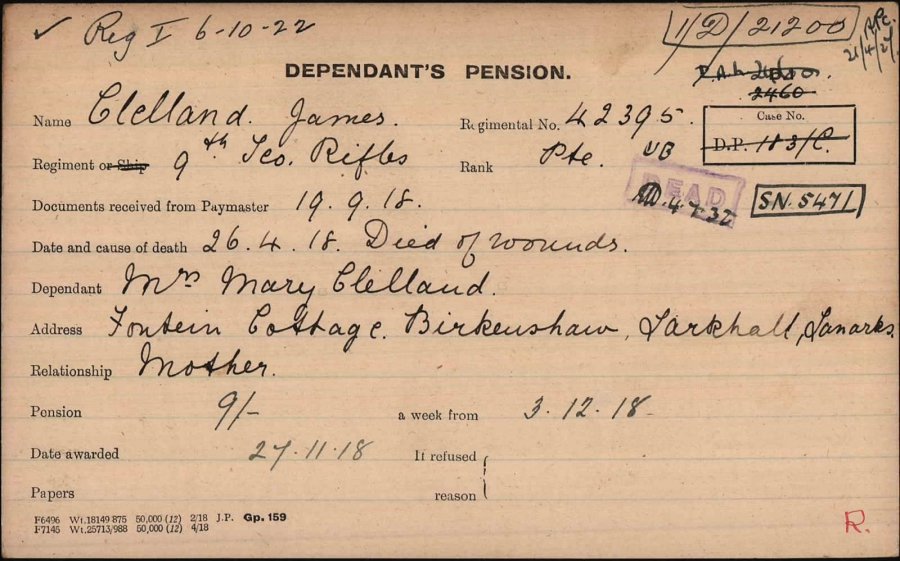 ✓ Reg I 6-10-22
1/D/21200
21/4/27
DEPENDANT'S PENSION.
2460
Name Clelland. James. Regimental No. 42395.
Case No.
D.P. 183/C.
Regiment or Ship 9th Sco. Rifles Rank Pte. UB
DEAD
Documents received from Paymaster 19.9.18.
SN.5471
Date and cause of death 26.4.18. Died of wounds.
Dependant Mrs Mary Clelland.
Address Fontein Cottage. Birkenshaw, Larkhall, Lanarks.
Relationship Mother.
Pension 9/- a week from 3.12.18-
Date awarded 27.11.18 If refused
Papers reason
F6496 Wt.18149 875 50,000 (12) 2/18 J.P. Gp. 159
F7145 Wt.25713/988 50,000 (12) 4/18
R.